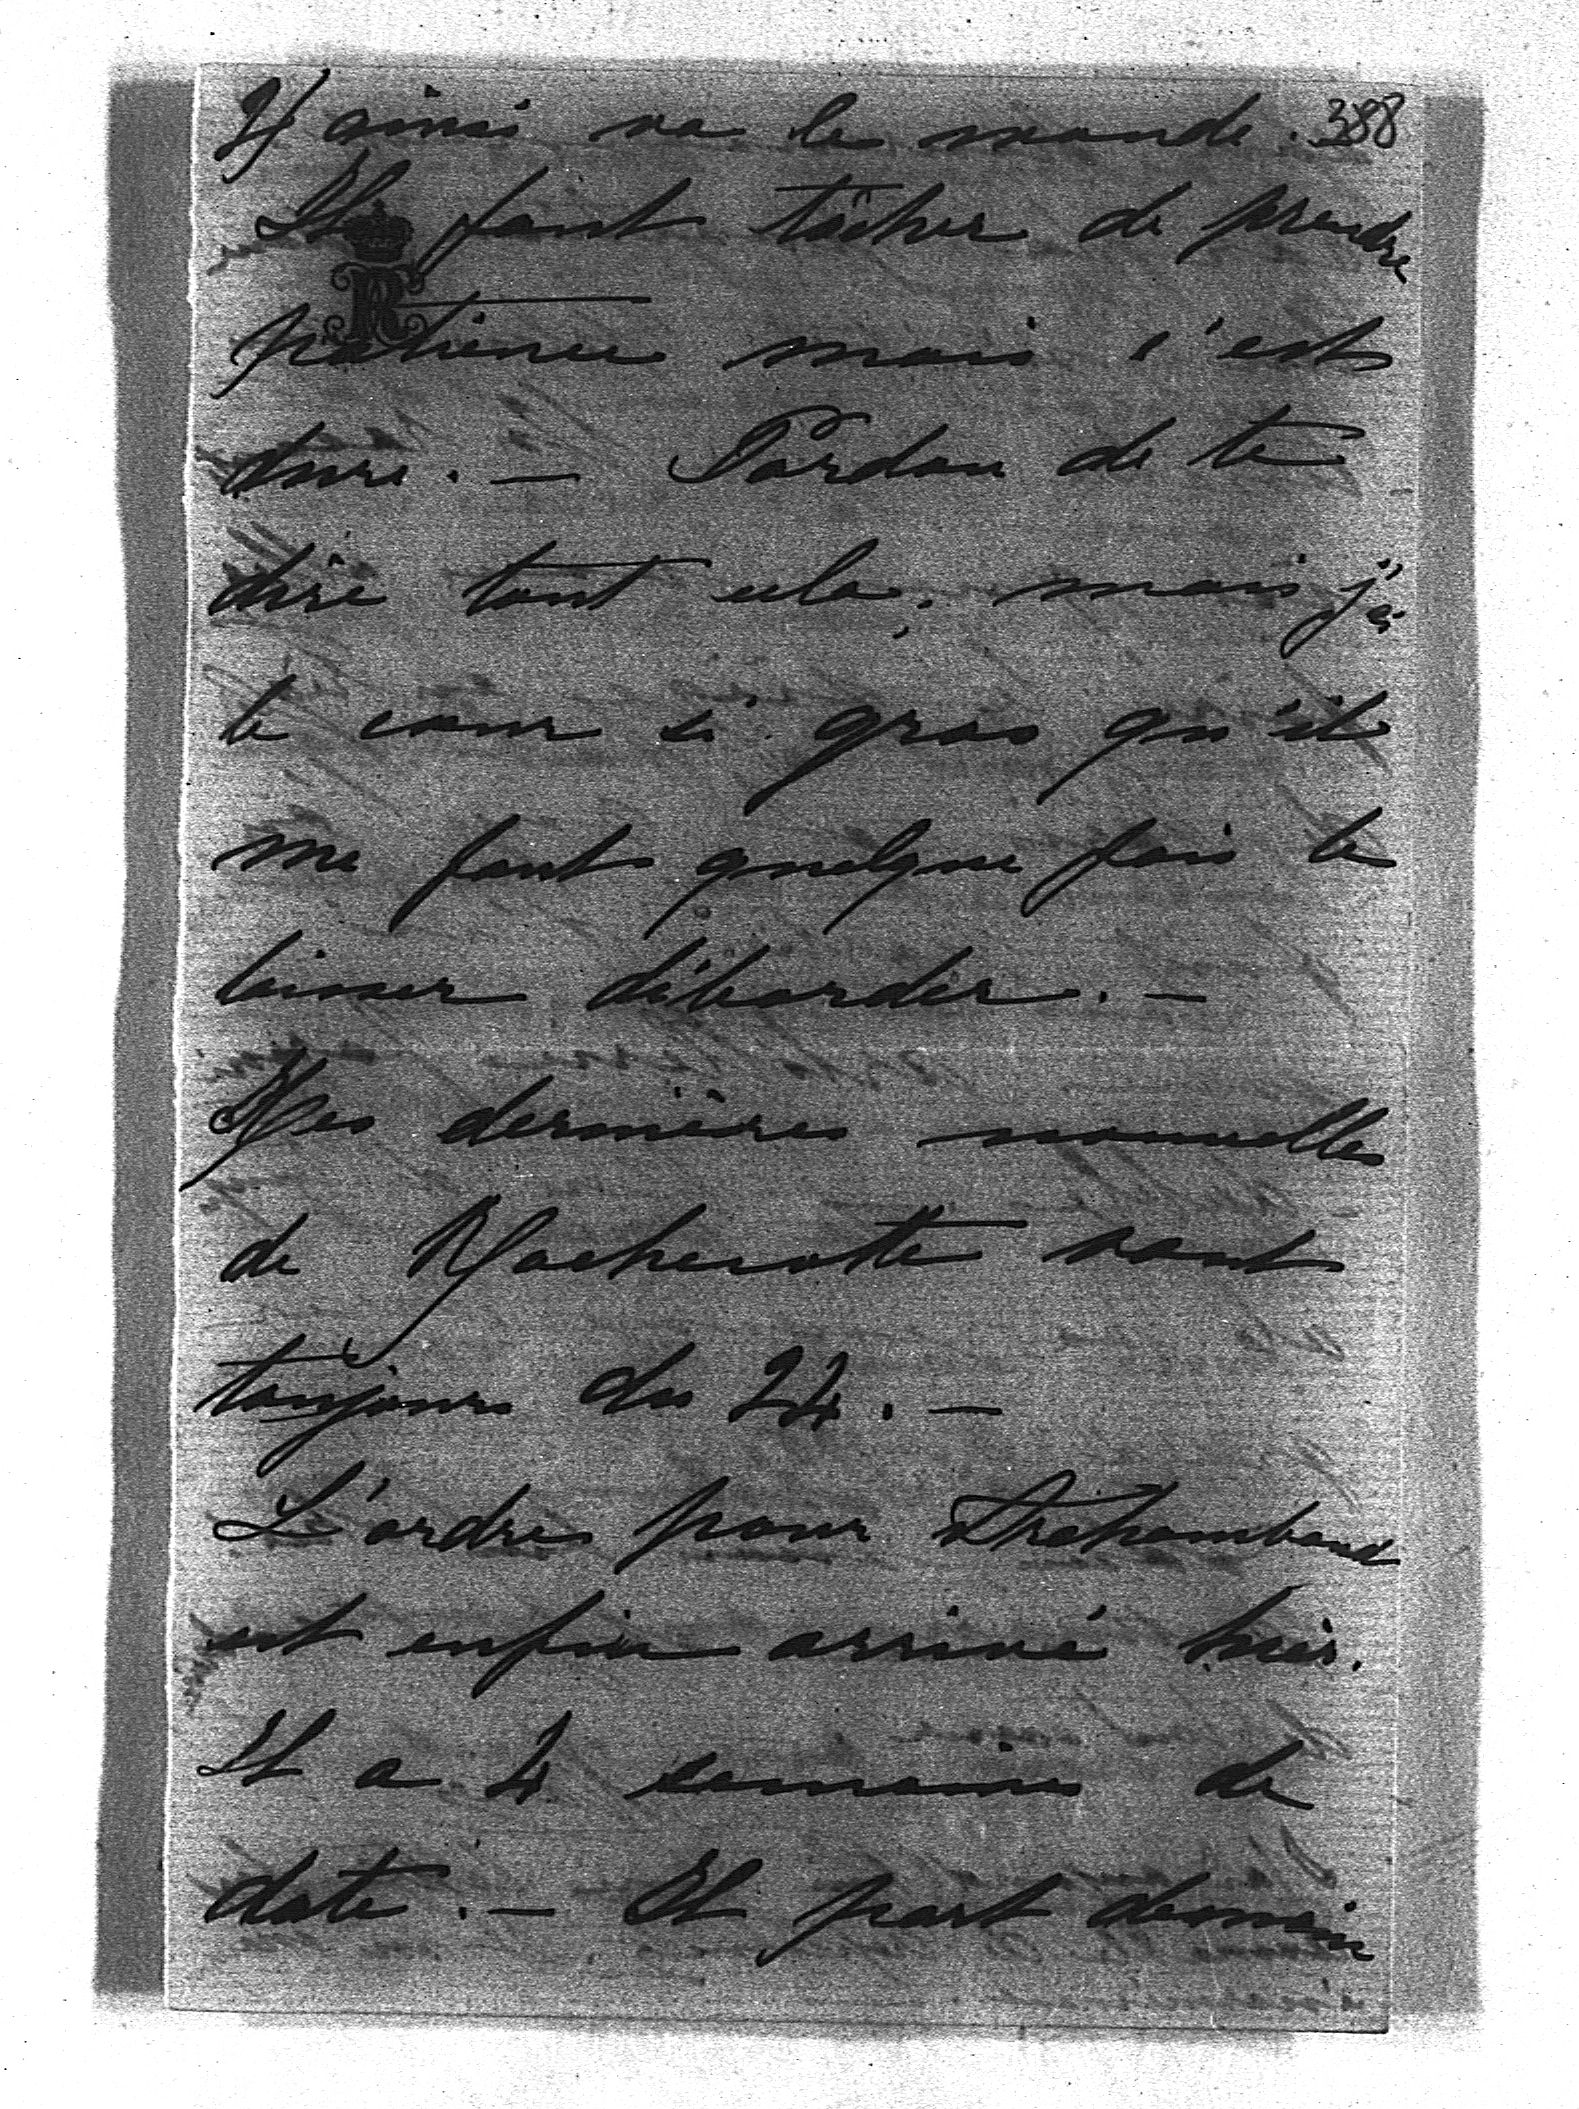 2/ ainsi va le monde. 388
Il faut tâcher de prendre
patience mais c'est
dure. — Pardon de te
dire tout cela, mais j'ai
le cœur si gros qu'il
me faut quelque fois le
laisser déborder. —
Mes dernières nouvelles
de sont
toujours du 24. —
L'ordre pour
est enfin arrivé hier.
Il a 4 semaines de
date. — Il part demain